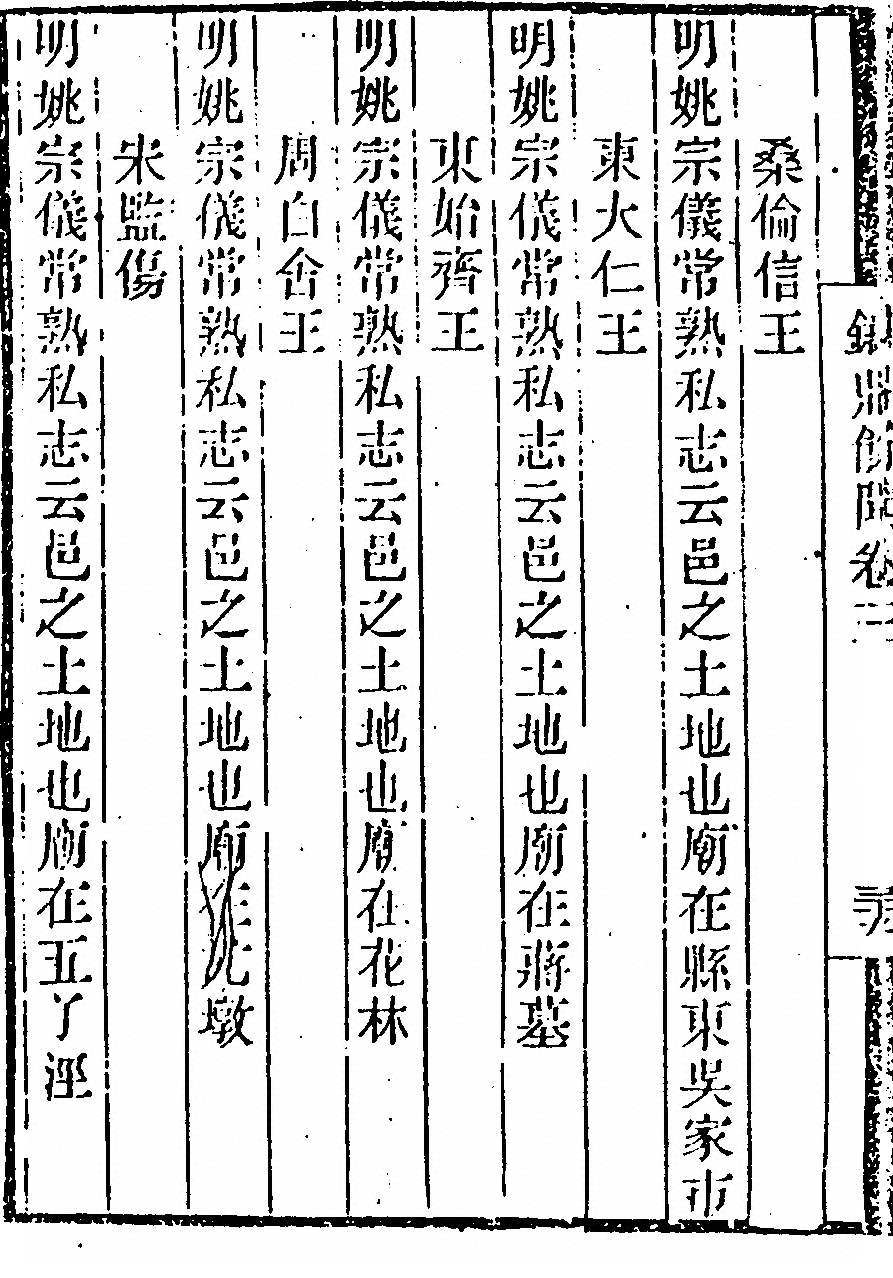 鼎餘聞卷三
桑倫信王
明姚宗儀常熟私志云邑之土地也廟在縣東吳家市
東火仁王
明姚宗儀常熟私志云邑之土地也廟在蔣墓
東始齊王
明姚宗儀常熟私志云邑之土地也廟在花林
周白舍王
明姚宗儀常熟私志云邑之土地也廟在墩
宋監傷
明姚宗儀常熟私志云邑之土地也廟在五丫涇